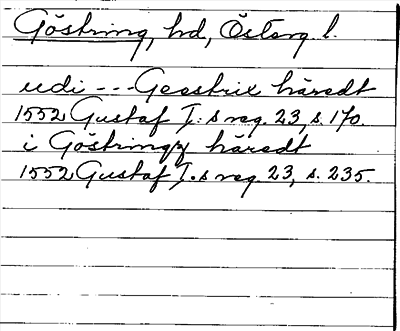 Göstring, hd, Österg l.
udi --- Gesstrix häredt
1552 Gustaf I:s reg. 23, s. 170.
i Göstringz häredt
1552 Gustaf I.s reg. 23, s. 235.